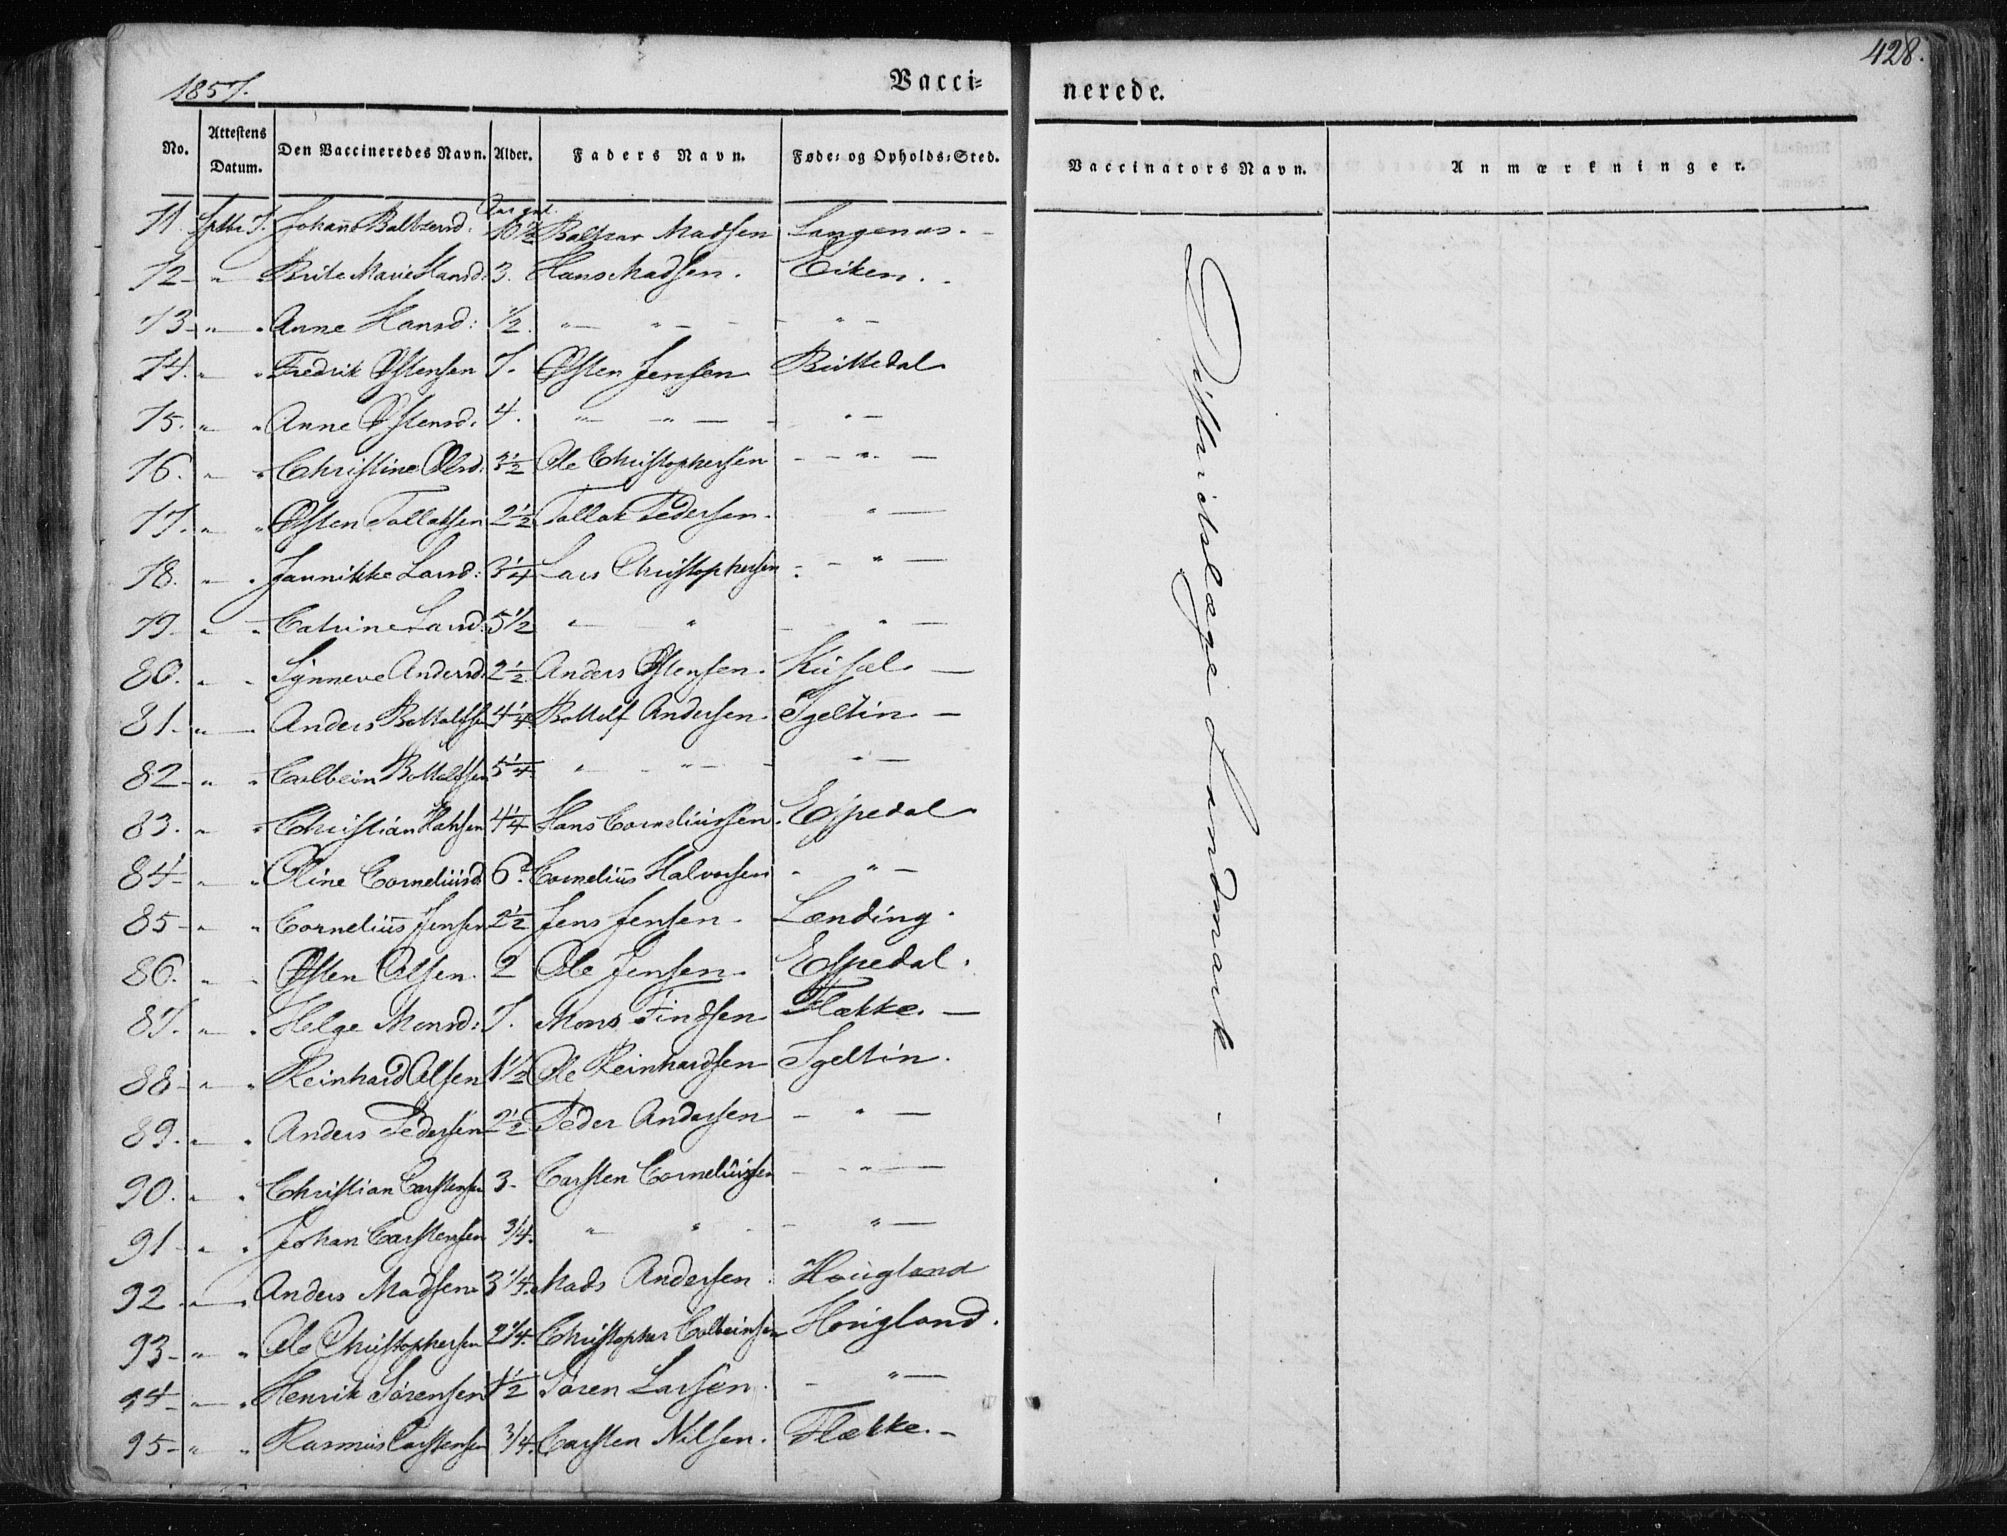 428.
1857.
Vacci-
nerede.
No. Attestens Datum. Den Vaccineredes Navn. Alder. Faders Navn. Føde- og Opholds-Sted.
Vaccinators Navn. Anmærkninger.
71. Septbr 7. Johane Baltzersd: 10 1/2 Baltzar Madsen Langenæs. -
72 - " Brite Marie Hansd: 3. Hans Madsen. Eiken. -
73 - " - " Anne Hansd: 1/2. " - " - " -
74. " " Fredrik Østensen 7. Østen Jensen Buttedal
75. " " Anne Østensd. 4. " " - " -
76. " " Christine Olsd: 3 1/2 Ole Christophersen - - " -
77. " " Østen Tollaksen 2 1/2 Tollak Pedersen. " -
78. " " Jannikke Larsd: 3 1/4 Lars Christophersen - - " -
79 - " " Catrine Larsd: 5 1/2 " " - " -
80. " " Synneve Andersd. 2 1/2 Anders Østensen. -
81 - " - Anders Bottolfsen 4 1/4 Bottolf Andersen. Igeltin -
82 - " " Colbein Bottolfsen 5 1/4 " - " - " -
83. " " Christian Hansen 4 1/4 Hans Corneliussen. Espedal
84 - " " Oline Corneliusd 6. Cornelius Halvorsen - " -
85 - " " Cornelius Jensen 2 1/2 Jens Jensen. Lænding.
86. " " Østen Olsen. 2 Ole Jensen. Espedal.
87. " " Helge Monsd: 7. Mons Findsen Flække. -
88 - " " Reinhard Olsen 1 1/2 Ole Reinhardsen Igeltin.
89. " " Anders Pedersen 2 1/2 Peder Andersen - " -
90. " " Christian Carstensen 3. Carsten Corneliussen - - " -
91 - " " Johan Carstensen 3/4. " " - " -
92 - " - Anders Madsen 3 1/4. Mads Andersen Hougland
93 - " " Ole Christophersen 2 1/4. Christopher Colbeinsen Hougland.
94 - " - " Henrik Sørensen 1 1/2 Søren Larsen. - " -
95 - " " Rasmus Carstensen 3/4. Carsten Nilsen. Flække. -
Districtslæge Landmark - - -